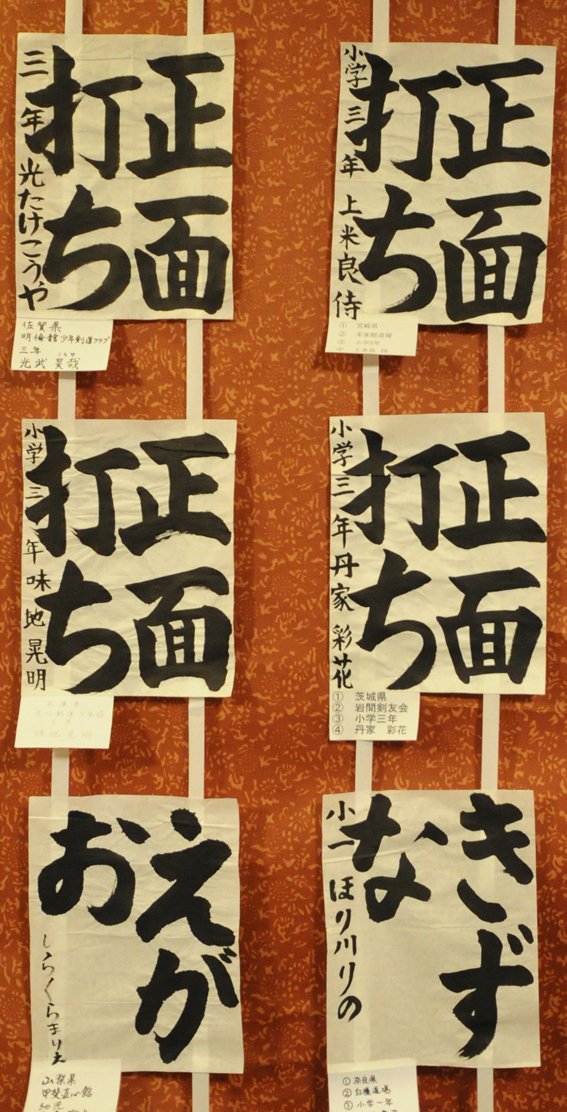 正面
打ち
三年 光たけこうや
佐賀県
明倫館少年剣道クラブ
三年
こうや
光武 昊哉
正面
打ち
小学三年 上米良侍
① 宮崎県
②
③ 小学3年
④ 上米良 侍
正面
打ち
小学三年 味地晃明
味地晃明
正面
打ち
小学三年 丹家 彩花
① 茨城県
② 岩間剣友会
③ 小学三年
④ 丹家 彩花
えが
お
しらくらまりえ
山梨県
甲斐直心館
幼児
きず
な
小一 ほり川りの
①奈良県
②白橿道場
③小学一年